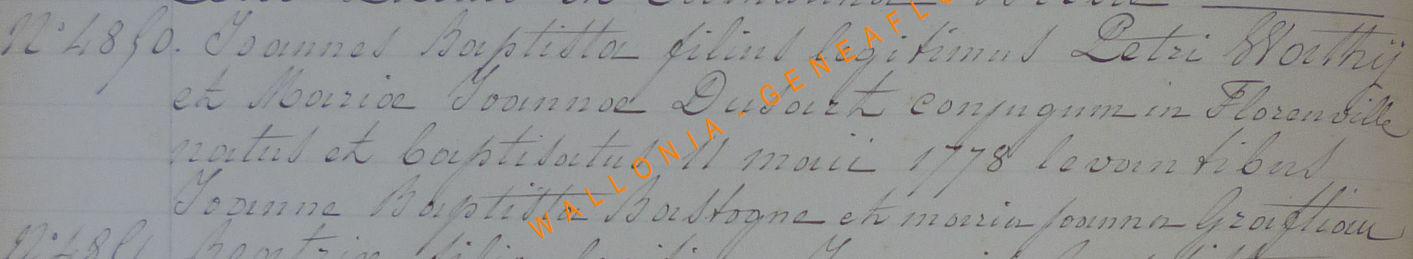 N° 4850. Joannes Baptista filius legitimus Petri Wathij
et Mariæ Joannæ Dusart conjugum in Florenville
natus et baptisatus 11 maii 1778 levantibus
Joanne Baptista Bastogne et maria joanna Graftiau
N° 4851
WALLONIA - GENEAFL